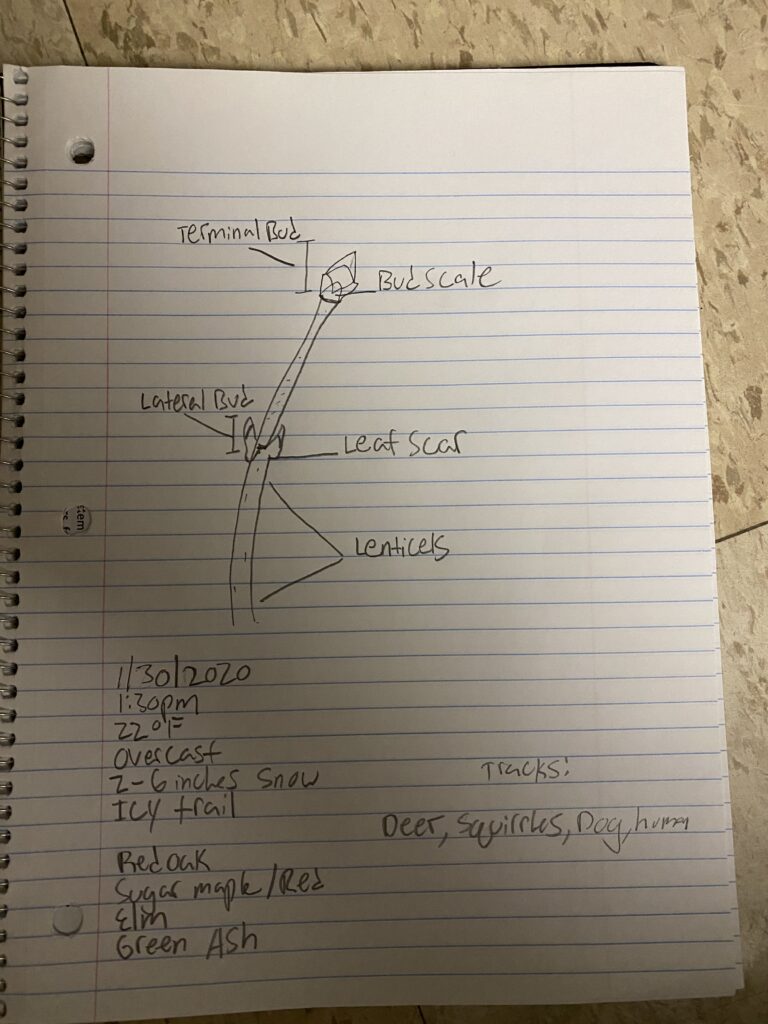 Terminal Bud
Bud scale
Lateral Bud
Leaf Scar
Lenticels
1/30/2020
1:30pm
22°F
Overcast
2-6 inches Snow
Icy trail
Tracks:
Deer, Squirrles, Dog, human
Red oak
Sugar maple/Red
Elm
Green Ash